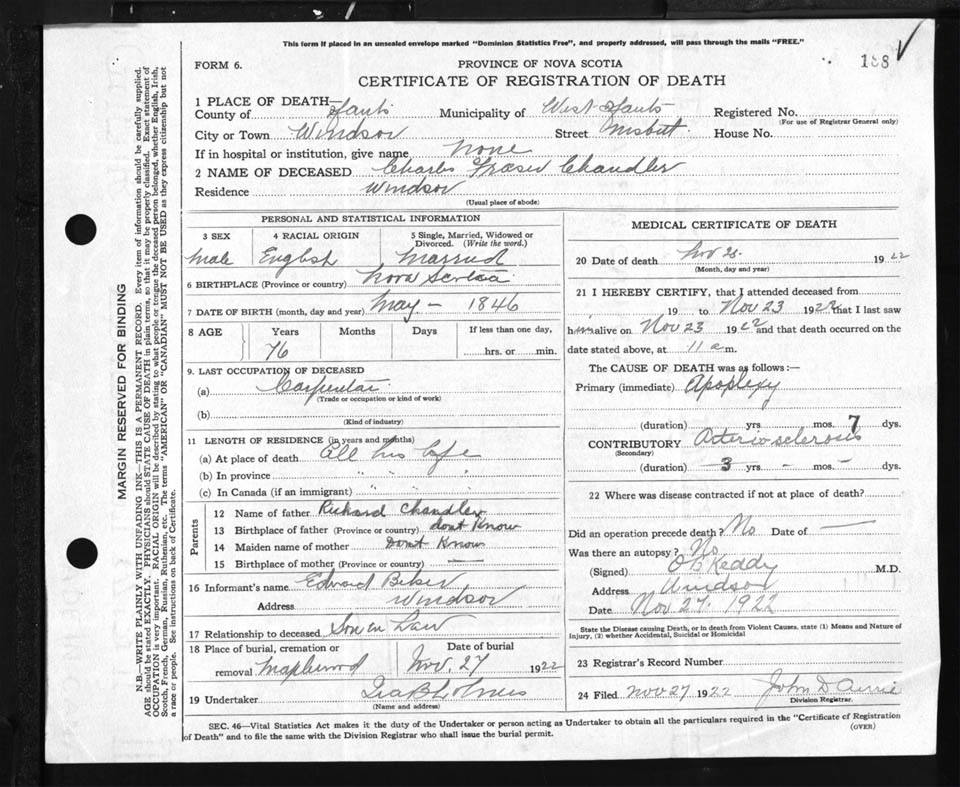 This form if placed in an unsealed envelope marked "Dominion Statistics Free", and properly addressed, will pass through the mails "FREE."
188
FORM 6.
PROVINCE OF NOVA SCOTIA
CERTIFICATE OF REGISTRATION OF DEATH
1 PLACE OF DEATH—
County of Hants Municipality of West Hants Registered No.
(For use of Registrar General only)
City or Town Windsor Street Nisbet House No.
If in hospital or institution, give name none
2 NAME OF DECEASED Charles Fraser Chandler
Residence Windsor
(Usual place of abode)
PERSONAL AND STATISTICAL INFORMATION
3 SEX 4 RACIAL ORIGIN 5 Single, Married, Widowed or Divorced. (Write the word.)
Male English Married
6 BIRTHPLACE (Province or country) Nova Scotia
7 DATE OF BIRTH (month, day and year) May — 1846
8 AGE Years Months Days If less than one day,
76 hrs. or min.
9. LAST OCCUPATION OF DECEASED
(a) Carpenter
(Trade or occupation or kind of work)
(b)
(Kind of industry)
11 LENGTH OF RESIDENCE (in years and months)
(a) At place of death All his life
(b) In province " " "
(c) In Canada (if an immigrant) " "
Parents
12 Name of father Richard Chandler
13 Birthplace of father (Province or country) dont Know
14 Maiden name of mother Dont Know
15 Birthplace of mother (Province or country) —
16 Informant's name Edward
Address Windsor
17 Relationship to deceased Son in Law
18 Place of burial, cremation or removal Maplewood
Date of burial Nov. 27 1922
19 Undertaker Ira B Holmes
(Name and address)
MEDICAL CERTIFICATE OF DEATH
20 Date of death Nov 1922
(Month, day and year)
21 I HEREBY CERTIFY, that I attended deceased from
19 to Nov 23 1922 that I last saw
him alive on Nov 23 1922 and that death occurred on
date stated above, at 11 a m.
The CAUSE OF DEATH was as follows:—
Primary (immediate) Apoplexy
(duration) yrs. mos. 7 dys.
CONTRIBUTORY Arterio sclerosis
(Secondary)
(duration) 3 yrs. - mos. - dys.
22 Where was disease contracted if not at place of death?
Did an operation precede death? No Date of —
Was there an autopsy? No
(Signed) O B Keddy M.D.
Address Windsor
Date Nov 27. 1922
State the Disease causing Death, or in death from Violent Causes, state (1) Means and Nature of Injury, (2) whether Accidental, Suicidal or Homicidal
23 Registrar's Record Number
24 Filed Nov 27 1922 John D
Division Registrar.
SEC. 46—Vital Statistics Act makes it the duty of the Undertaker or person acting as Undertaker to obtain all the particulars required in the "Certificate of Registration
of Death" and to file the same with the Division Registrar who shall issue the burial permit.
(OVER)
MARGIN RESERVED FOR BINDING
N.B.—WRITE PLAINLY WITH UNFADING INK—THIS IS A PERMANENT RECORD. Every item of information should be carefully supplied.
AGE should be stated EXACTLY. PHYSICIANS should STATE CAUSE OF DEATH in plain terms, so that it may be properly classified. Exact statement of
OCCUPATION is very important. RACIAL ORIGIN will be described by stating to what people or tongue the deceased person belonged, whether English, Irish,
Scotch, French, German, Russian, Ruthenian, etc. The terms "AMERICAN" OR "CANADIAN" MUST NOT BE USED as they express citizenship but not
a race or people. See instructions on back of Certificate.